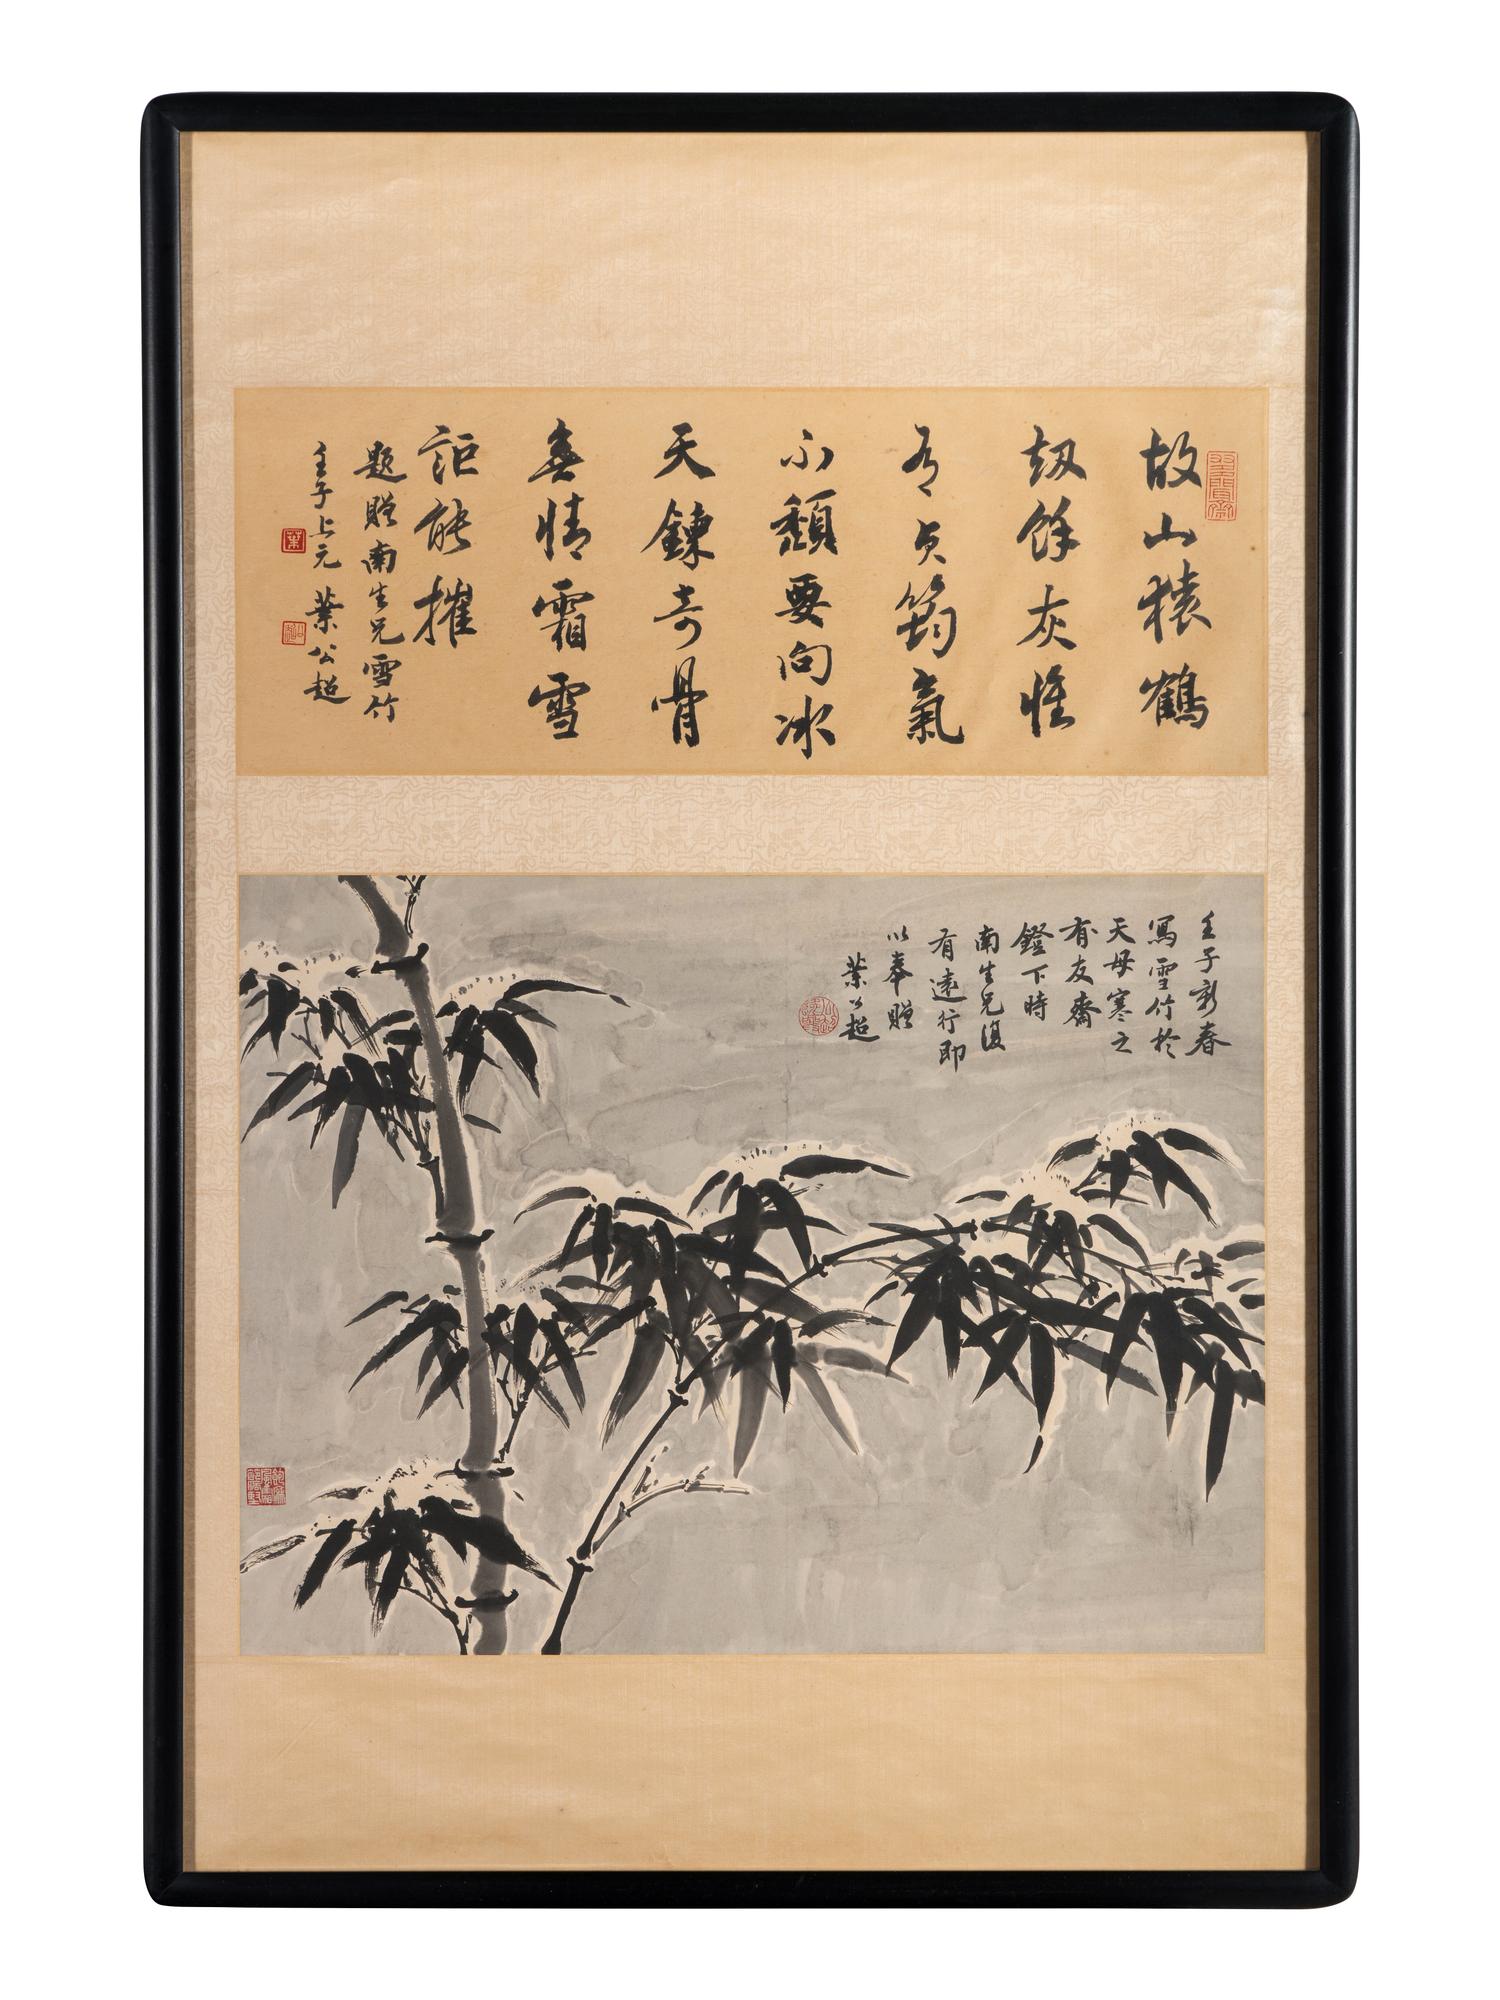 故山猿鶴
劫餘灰惟
有貞筠氣
不頹要向冰
天鍊奇骨
無情霜雪
詎能摧
題贈南生兄雪竹
壬子上元 葉公超
葉
壬子新春
寫雪竹於
天母寒之
有友齋
鐙下時
南生兄復
有遠行即
以奉贈
葉公超